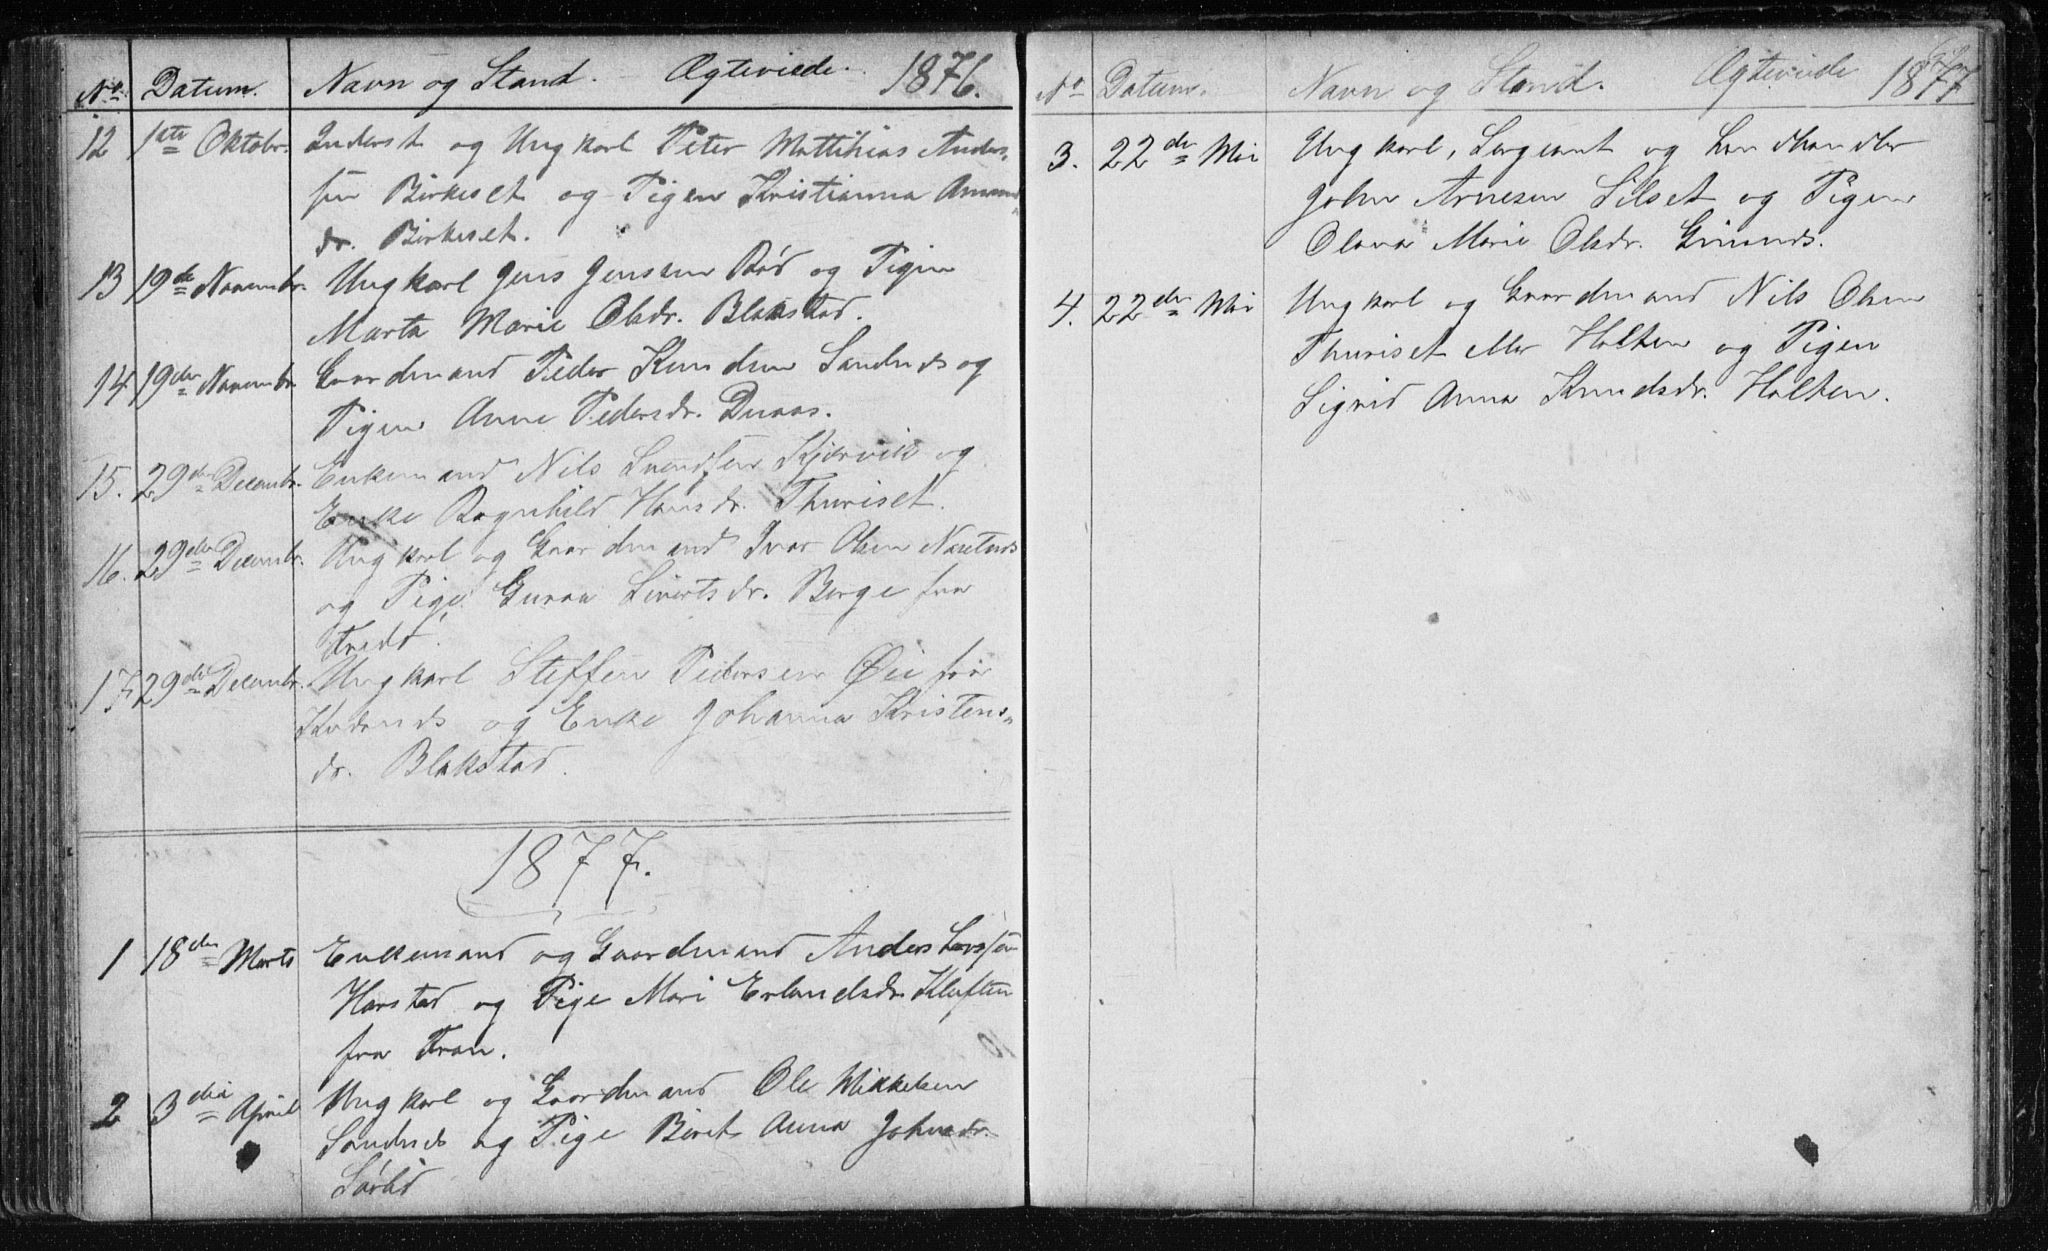 No. Datum. Navn og Stand. Ægteviede. 1876.
12 1ste Oktobr. Inderst og Ungkarl Peter Matthias Anders-
sen Birkeset og Pigen Kristianna Amund-
dr. Birkeset.
13 19de Novembr. Ungkarl Jens Jensen Rød og Pigen
Marta Marie Olsdr. Blakstad.
14 19de Novembr. Gaardmand Peder Knudsen Sandnes og
Pigen Anne Pedersdr. Duaas.
15. 29de Decembr. Enkemand Nils Svendsen Kjørvik og
Enke Ragnhild Hansdr. Thuriset.
16. 29de Decembr. Ungkarl og Gaardmand Ivar Olsen
og Pige Guraa Sivertsdr. Berge fra
Fredø.
17 29de Decembr. Ungkarl Steffen Pedersen Øie fra
Kvernes og Enke Johanna Kristens-
dr. Blakstad.
1877.
1 18de Marts Enkemand og Gaardmand Anders Larssen
Harstad og Pige Mari Erlandsdr. Kløften
fra Tron.
2 3die April Ungkarl og Gaardmand Ole Mikkelsen
Sandnes og Pige Beret Anna Johnsdr.
Sørlid
No Datum. Navn og Stand. Ægteviede 1877
3. 22de Mai Ungkarl, Sergeant og Landhandler
John Arnesen Silset og Pigen
Olava Marie Olsdr. Gimnes.
4. 22de Mai Ungkarl og Gaardmand Nils Olsen
Thuriset eller Holten og Pigen
Sigrid Anna Knudsdr. Holten.